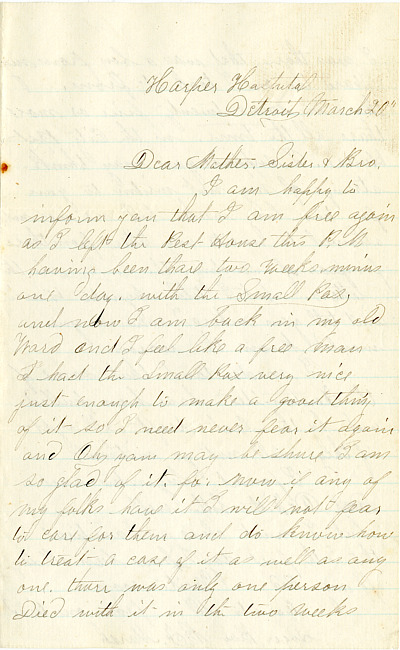 Harper Hospital
Detroit March 20"
Dear Mother, Sister & Bro,
I am happy to
inform you that I am free again
as I left the Pest House this P.M
having been thare two weeks minus
one day. with the Small Pox,
and now I am back in my old
Ward and I feel like a free man
I had the Small Pox very nice
just enough to make a good thing
of it so I need never fear it again
and Oh, you may be shure I am
so glad of it. for now if any of
my folks have it I will not fear
to care for them and do know how
to treat a case of it as well as any
one. thare was only one person
Died with it in the two weeks